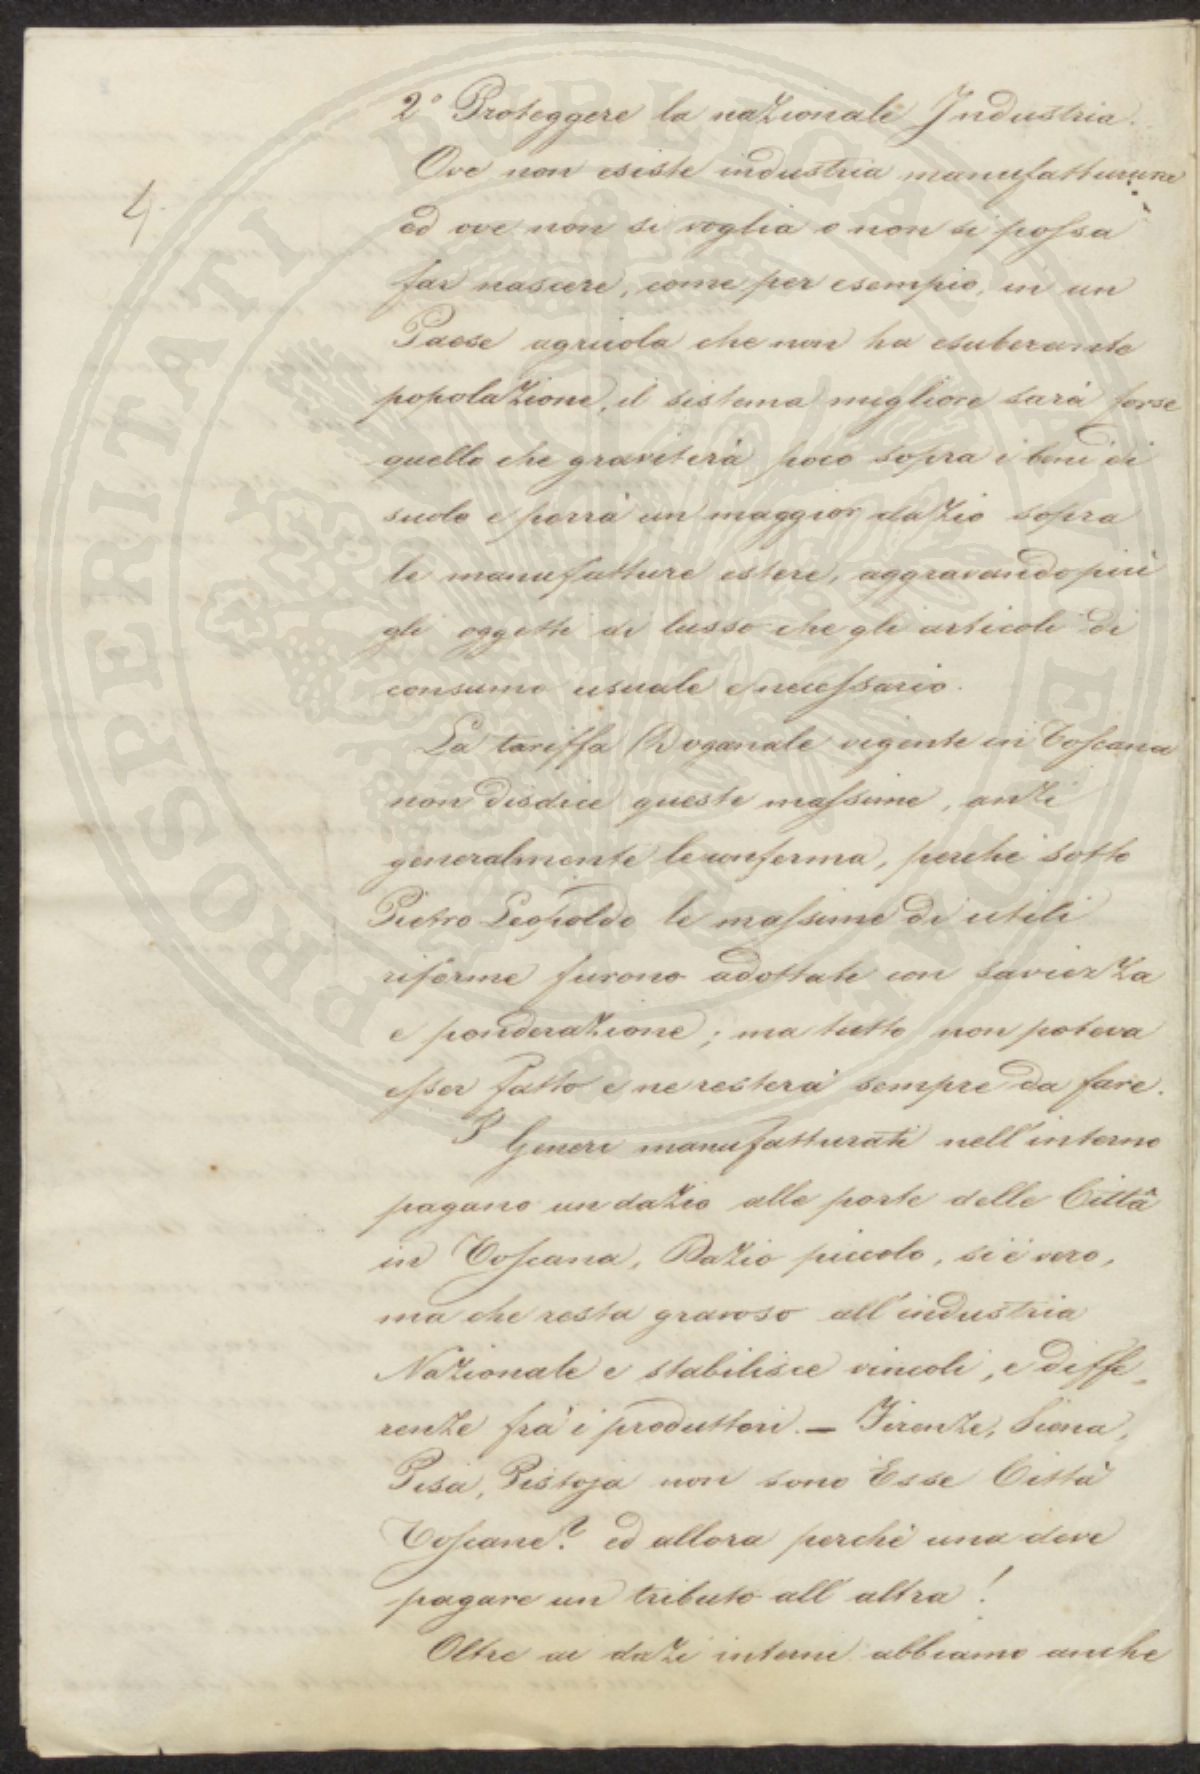 2° Proteggere la nazionale Industria.
Ove non esiste industria manufatturiera
4.
ed ove non si voglia o non si possa
far nascere, come per esempio, in un
Paese agricola che non ha esuberante
popolazione, il sistema migliore sarà forse
quello che graviterà poco sopra i beni di
suolo e porrà un maggior dazio sopra
le manufatture estere, aggravando più
gli oggetti di lusso che gli articoli di
consumo usuale e necessario.
La tariffa Doganale vigente in Toscana
non disdice queste massime, anzi
generalmente le conferma, perchè sotto
Pietro Leopoldo le massime di utili
riforme furono adottate con saviezza
e ponderazione; ma tutto non poteva
esser fatto e ne resterà sempre da fare.
I Generi manufatturati nell'interno
pagano un dazio alle porte delle Città
in Toscana, Dazio piccolo, si è vero,
ma che resta gravoso all'industria
Nazionale e stabilisce vincoli, e diffe-
renze frà i produttori. — Firenze, Siena,
Pisa, Pistoja non sono Esse Città
Toscane? ed allora perchè una deve
pagare un tributo all'altra!
Oltre ai dazi interni abbiamo anche
PROSPERITATI PUBLICAE AUGENDAE